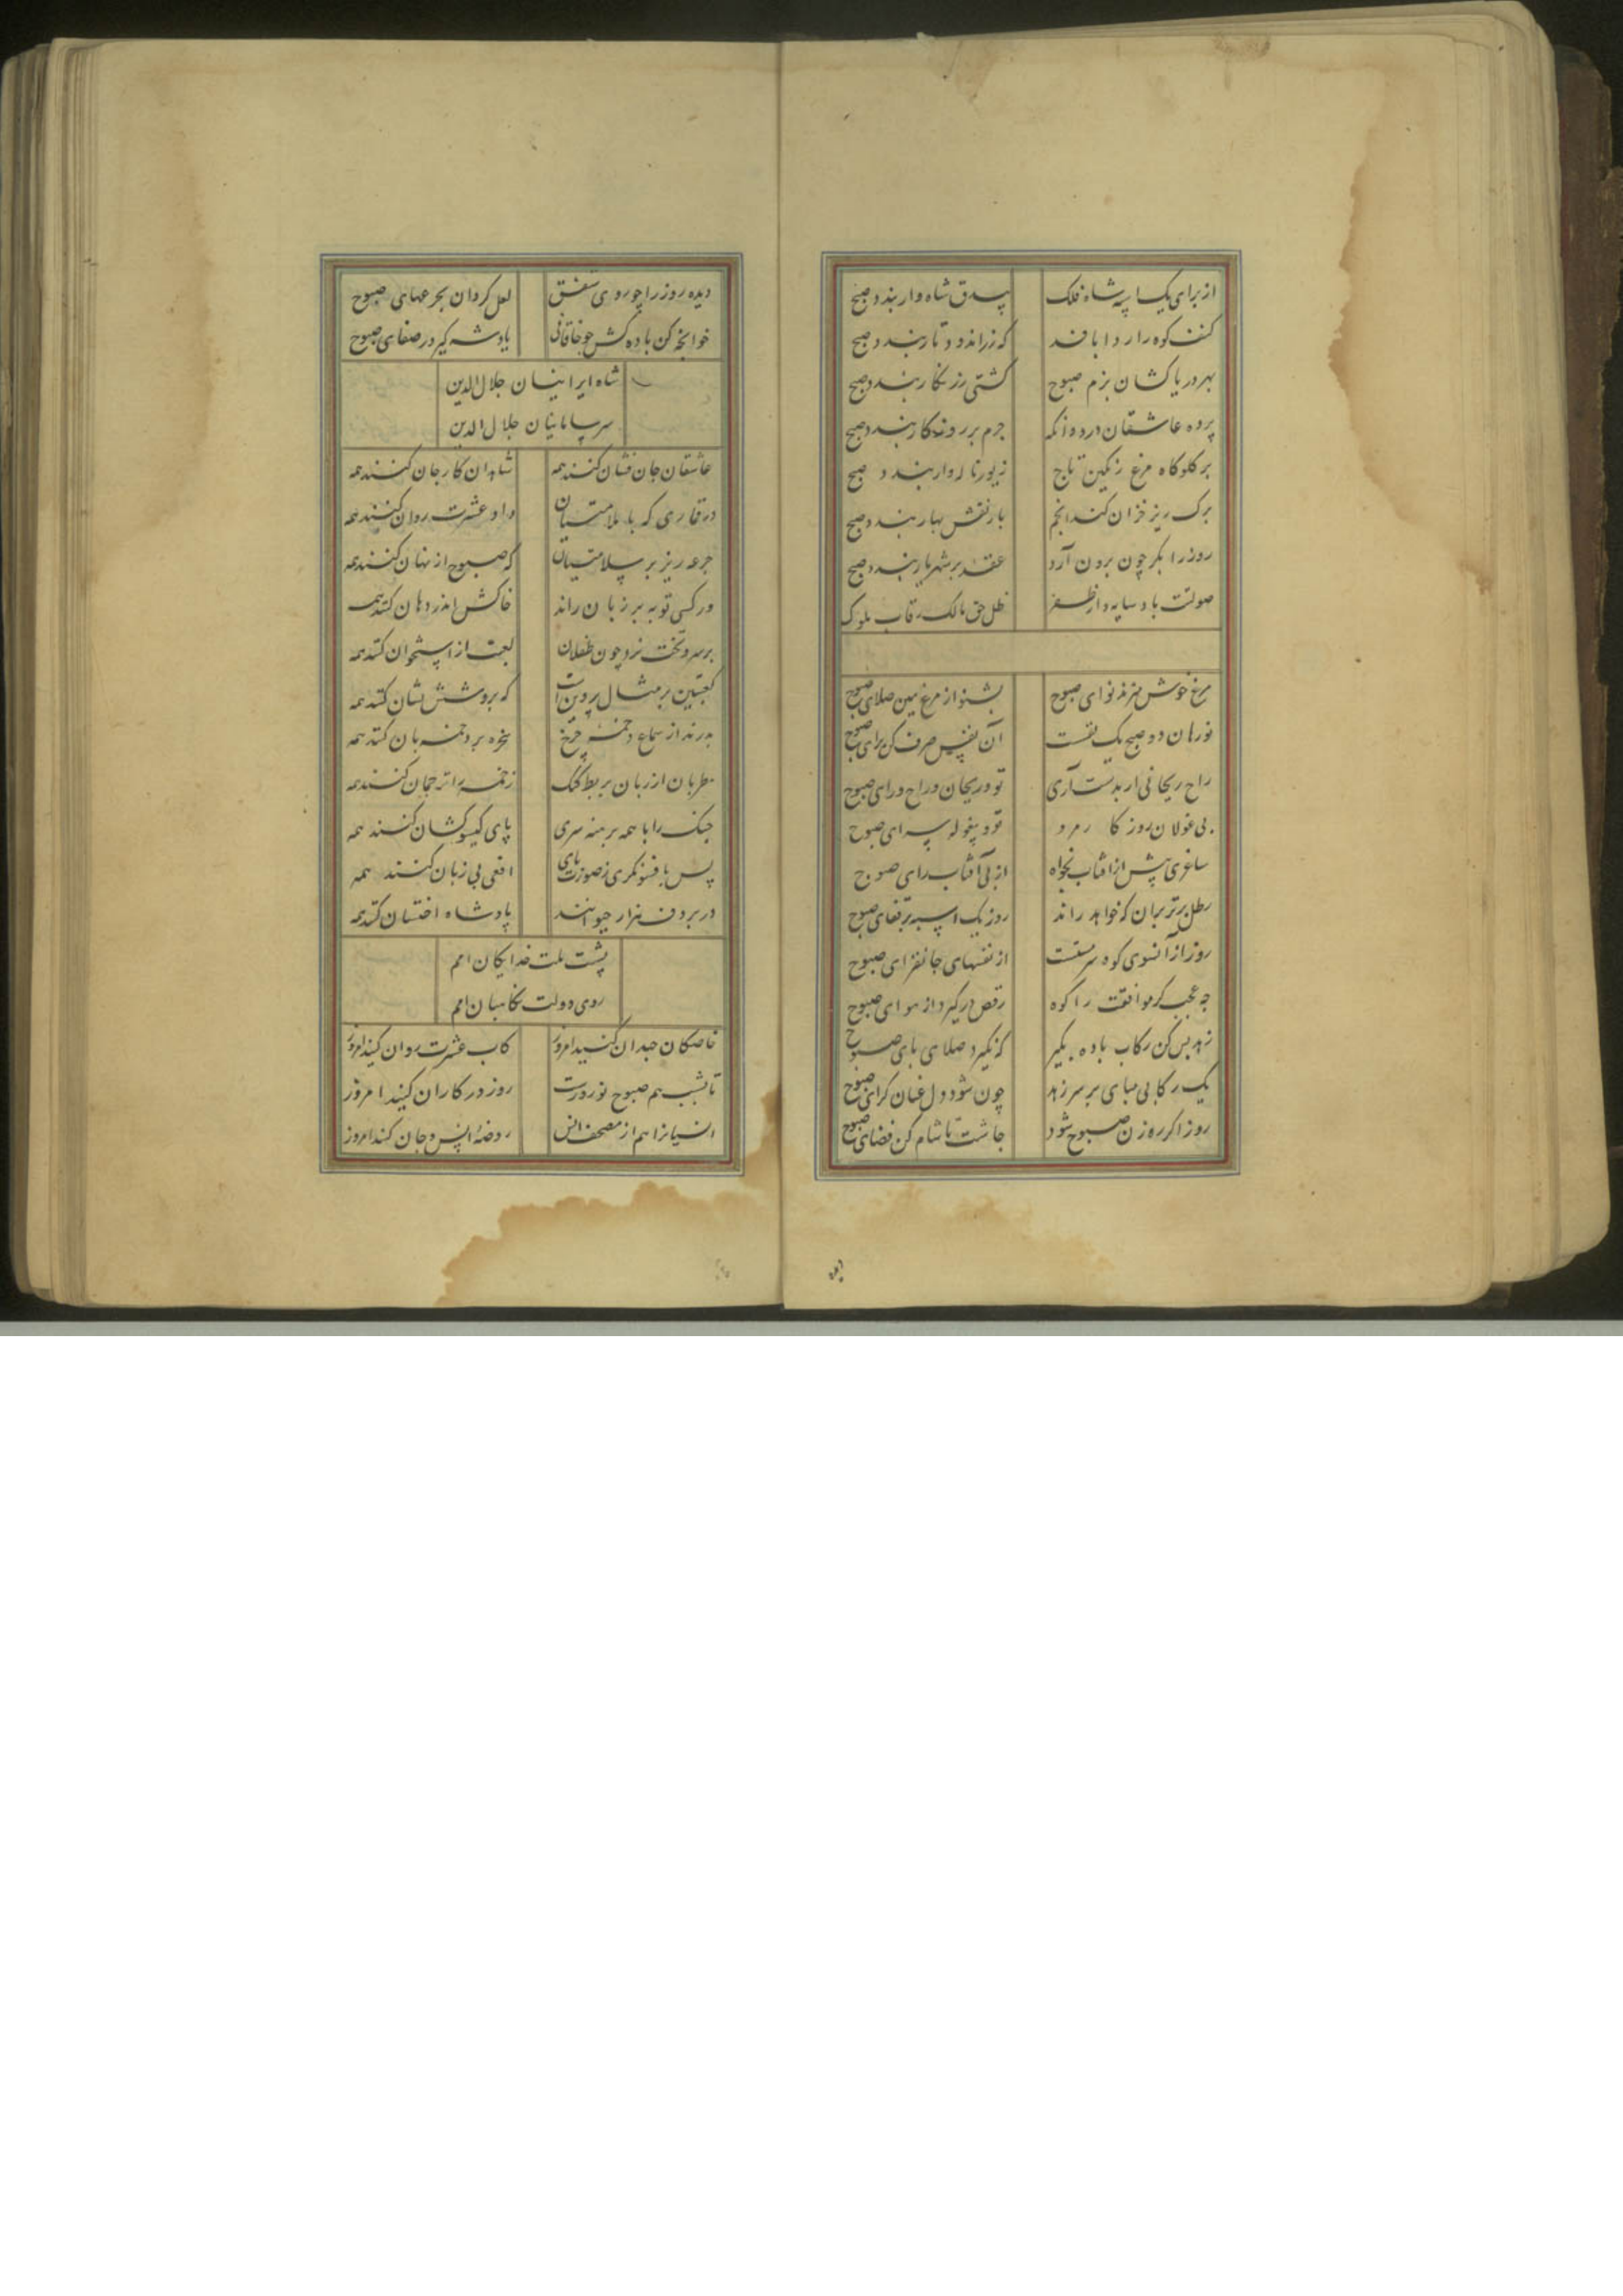 از برای یک اسپه شاه فلک بیدق شاه وار بندد صبح
کتف کوه را ردا بافد که زراندود تار بندد صبح
بهر دریاکشان بزم صبوح کشتی زرنگار بندد صبح
پرده عاشقان درد وانکه جرم بر روزکار بندد صبح
بر کلوکاه مرغ رنکین تاج زیور ناله وار بندد صبح
برک ریز خزان کند انجم باز نقش بهار بندد صبح
روز را بکر چون برون آرد عقد بر شهریار بندد صبح
صولتت باد سایه دار ظفر ظل حق مالک رقاب ملوک
مرغ خوش میزند نوای صبوح بشنو از مرغ هین صلای صبوح
نورهان دو صبح یک نفست آن نفس صرف کن برای صبوح
راح ریحانی ار بدست آری تو و ریحان و راح و رای صبوح
بی غولان روزکار مرو تو و بیغوله سرای صبوح
ساغری پیش از آفتاب بخواه از پی آفتاب رای صبوح
رطل پرتر بران که خواهد راند روز یک اسبه بر قفای صبوح
روز از آنسوی کوه سرمستت از نفسهای جانفزای صبوح
چه عجب کر موافقت را کوه رقص درکیرد از هوای صبوح
زهد بس کن رکاب باده بکیر که نکیرد صلای بای صبوح
یک رکابی مبای بر سر زهد چون شود دل عنان کرای صبوح
روز اکر ره زن صبوح شود چاشت تا شام کن فضای صبوح
دیده روز را چو روی شفق لعل کردان بجرعهای صبوح
خوانچه کن باده کش چو خاقانی یاد شه کیر در صفای صبوح
شاه ایرانیان جلال الدین
سر سامانیان جلال الدین
عاشقان جان فشان کنند همه شاهدان کار جان کنند همه
در قماری که با ملامتیان داو عشرت روان کنند همه
جرعه ریز بر سلامتیان که صبوح از نهان کنند همه
ور کسی توبه بر زبان راند خاکش اندر دهان کنند همه
بر سر و تخت نرد چون طفلان لعبت از استخوان کنند همه
کعبتین بر مثال پروین است که بر و شش نشان کنند همه
بدرند از سماع دخمه چرخ سخره بر دخمه بان کنند همه
مطربان از زبان بربط کنک زخمه را ترجمان کنند همه
چنک را با همه برهنه سری پای کیسو کشان کنند همه
پس بافسونکری ز صورت نای افعی بی زبان کنند همه
در بر دف هزار حیوانند پادشاه اخستان کنند همه
پشت ملت خدایکان امم
روی دولت نکاهبان امم
خاصکان جهد آن کنید امروز کاب عشرت روان کنید امروز
تا بشب هم صبوح نوروزست روز در کار آن کنید امروز
انسیانرا هم از مصحف انس روضه انس و جان کنند امروز